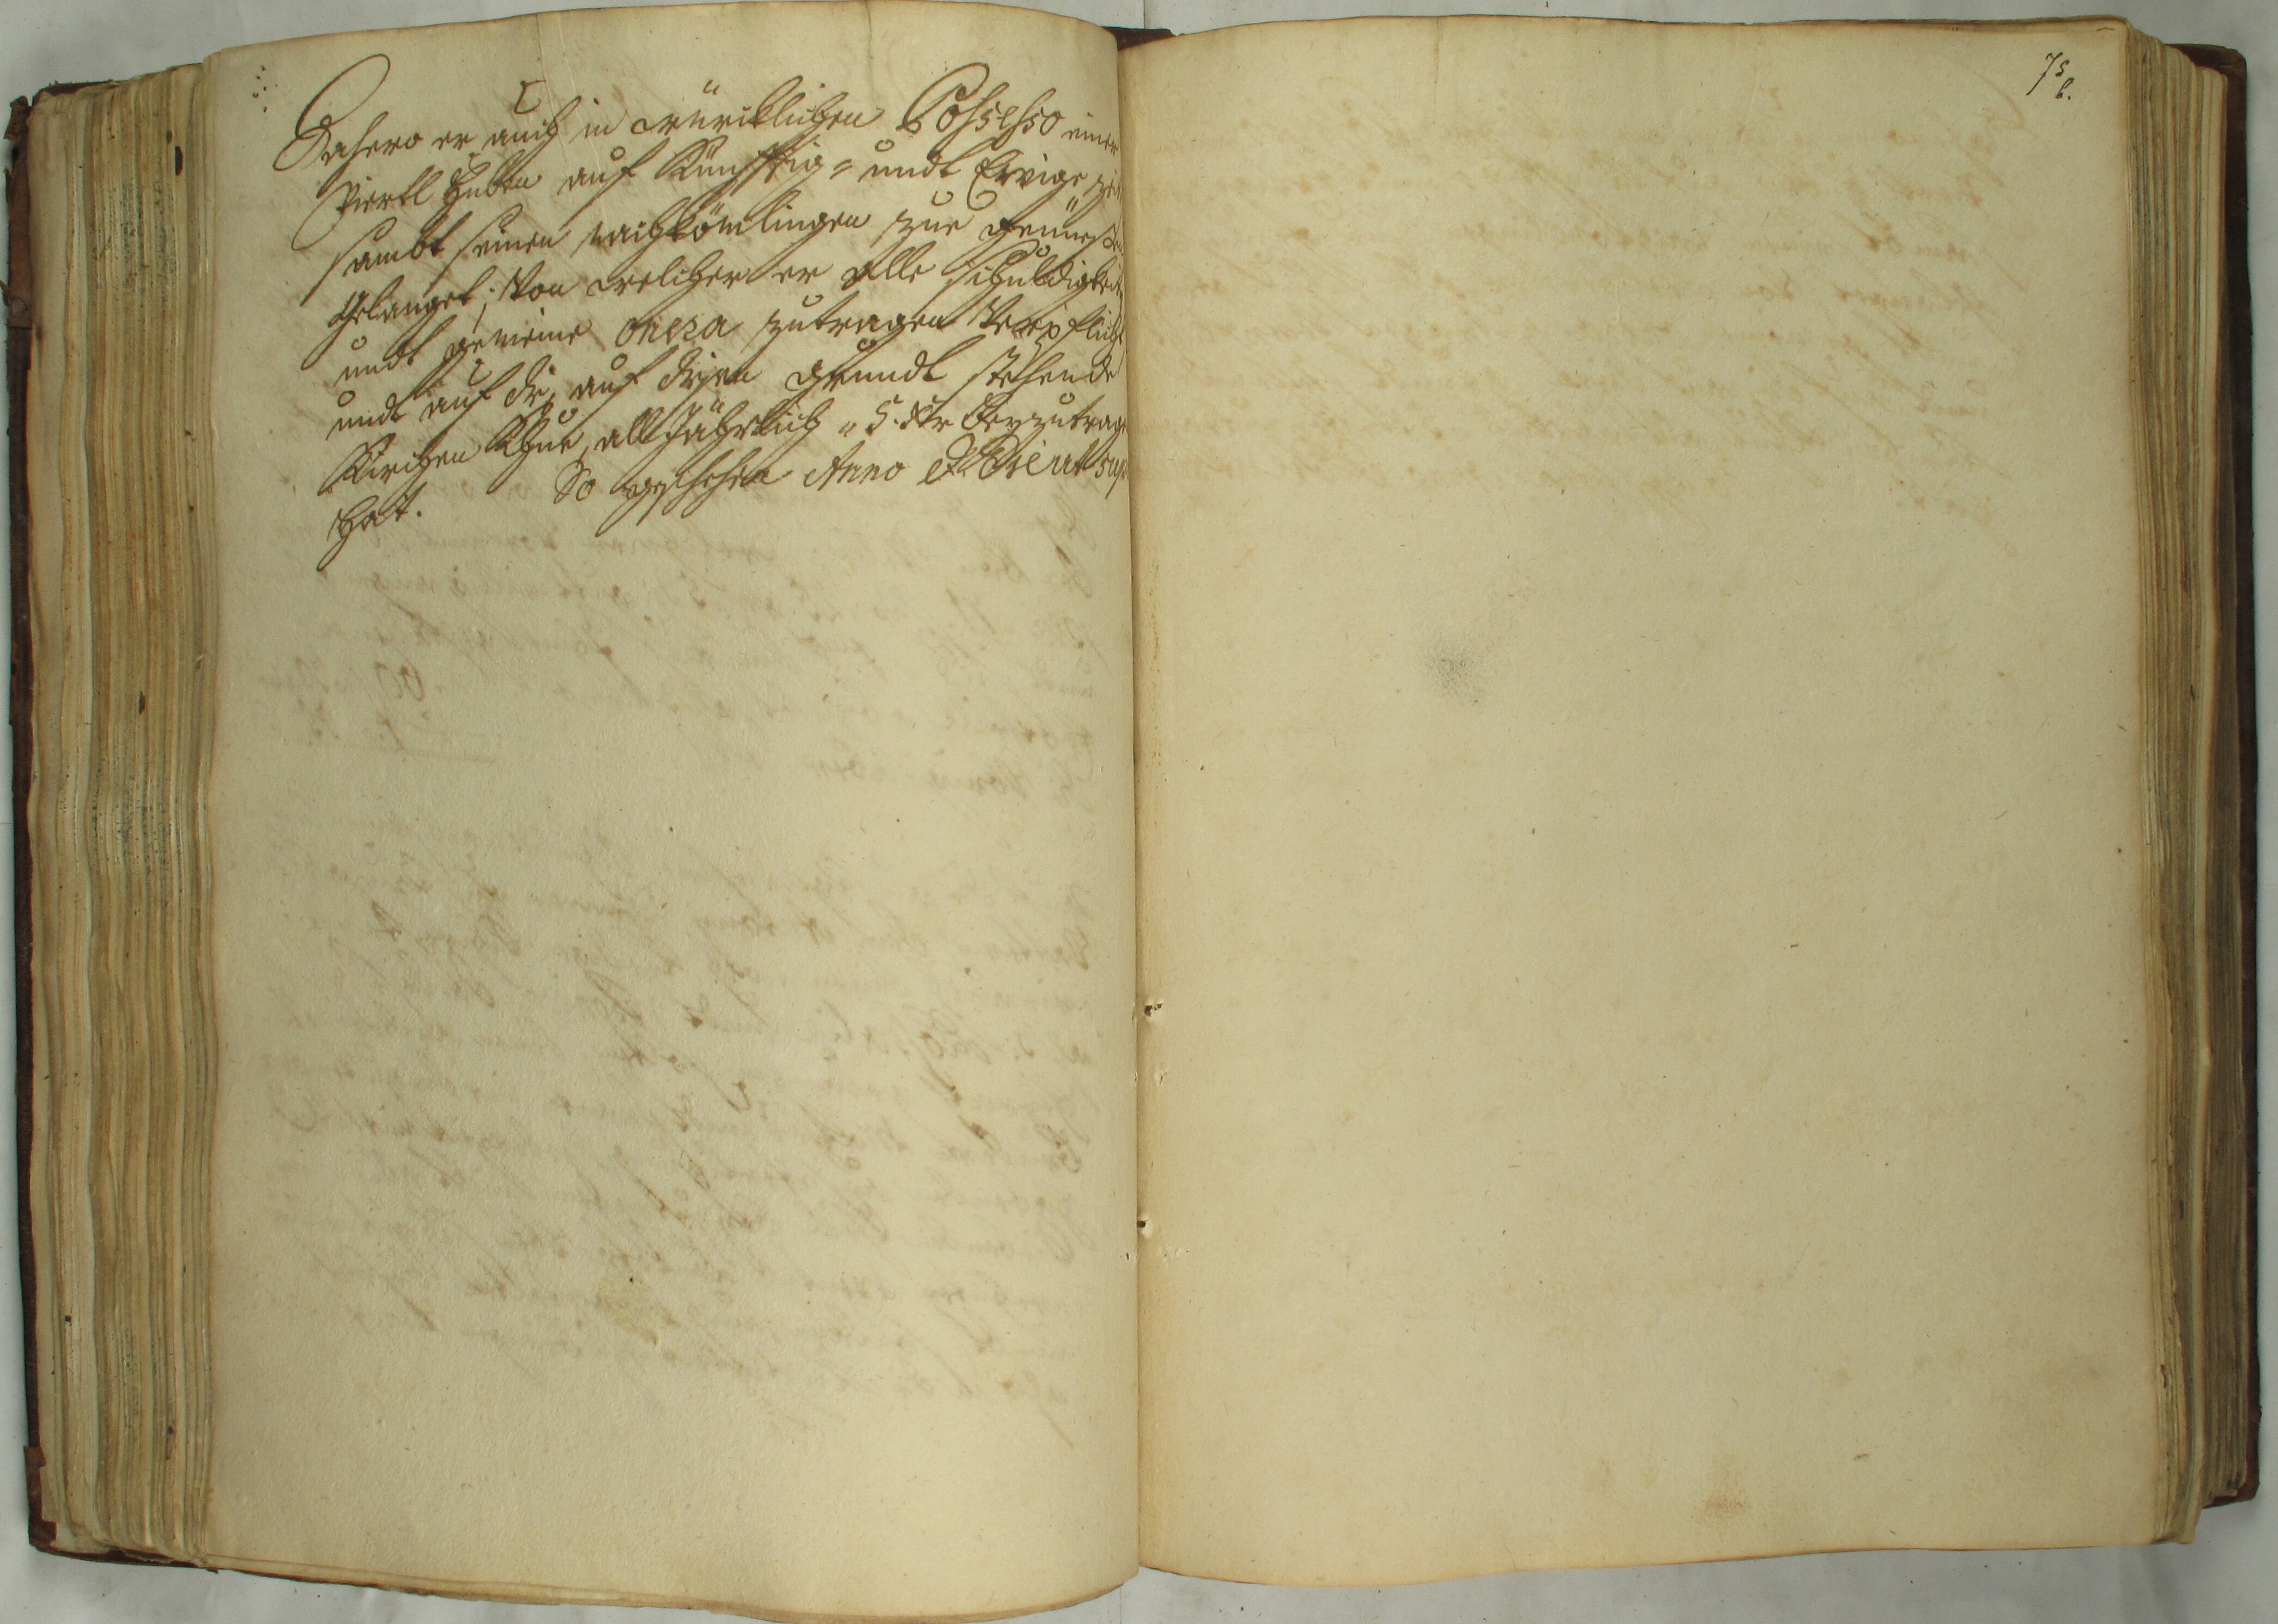 Dahero er auch in würcklichen Possesso einer
Viertl Huben auf Künfftig- undt Ewige zeit
sambt seinen nachkömlingen zue genüessen
gelanget; Von welcher er alle schuldigkeit
undt gemeine onera zutragen Verpflicht
undt auf die, auf disen grundt stehende
Kirchen Khue, all Jährlich 5. xr beyzutragen
hat. So geschehen Anno et Die ut sup
75
b.